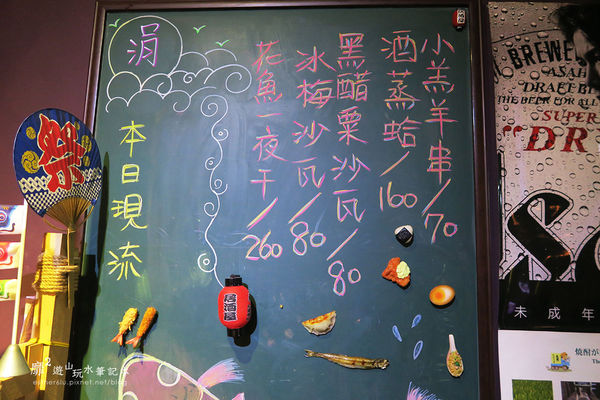 涓
本日現流
小羔羊串/70
酒蒸蛤/160
黑醋粟沙瓦/80
冰梅沙瓦/80
花魚一夜干/260
祭
居酒屋
BREWE
ASAH
DRAFT BE
THE BEER FOR ALL
SUPER
"DR
未成年
焼酎が
The
遊山玩水筆記
esther6lu.pixnet.net/blog